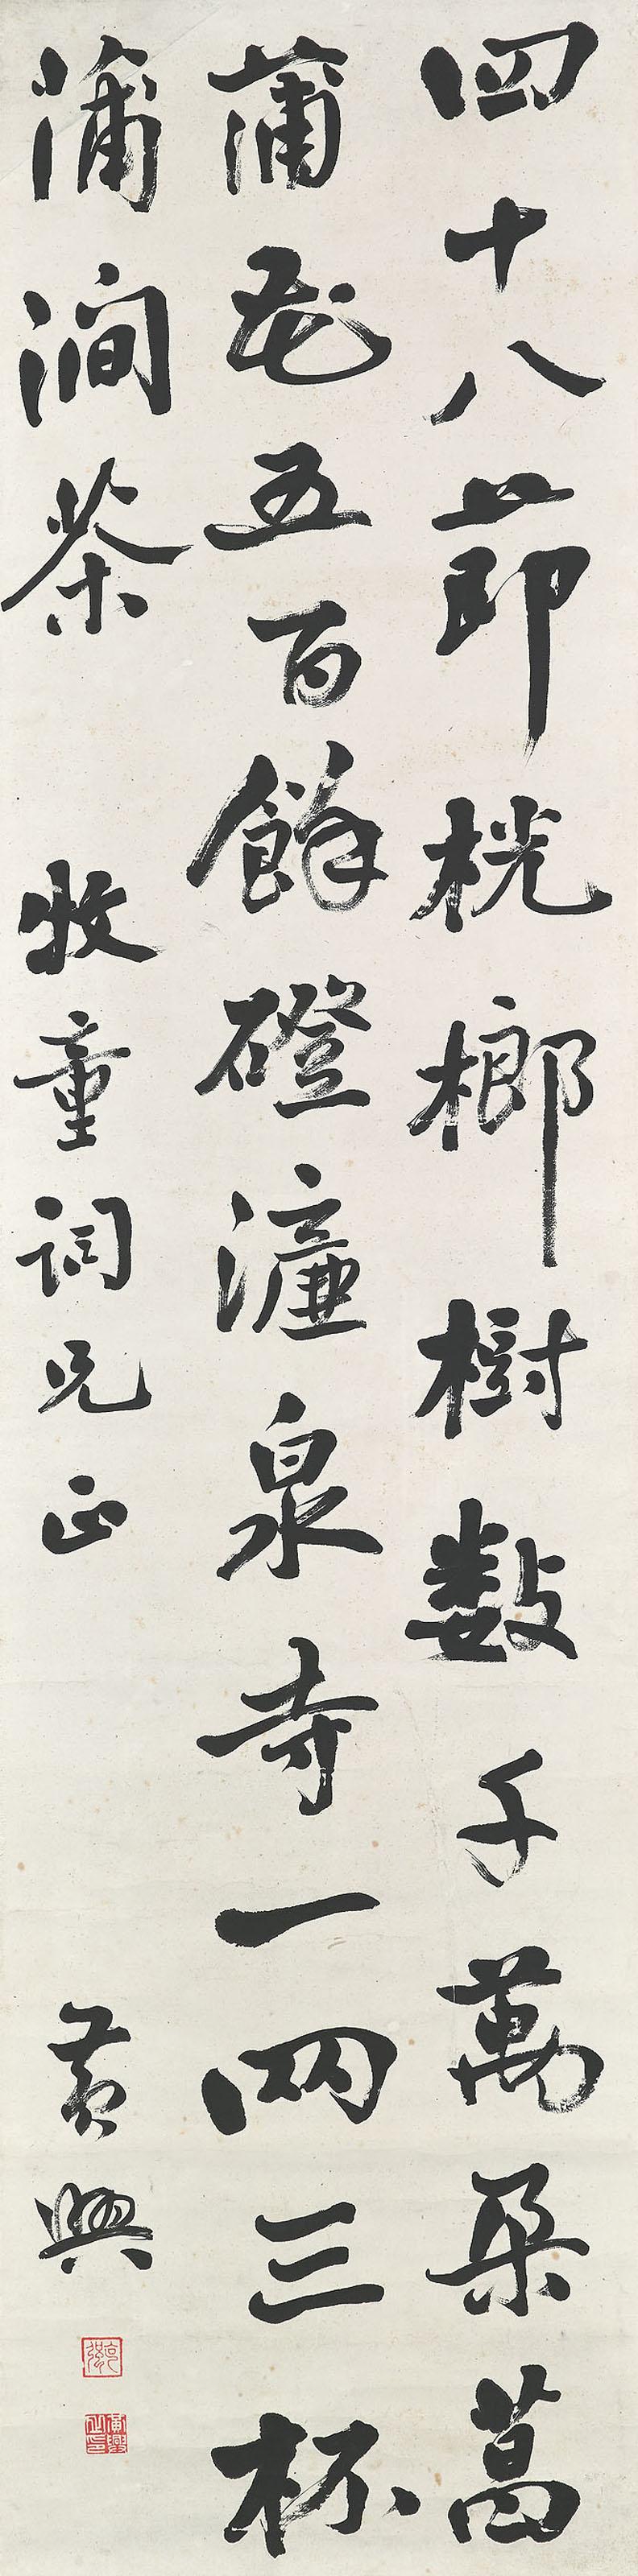 四十八節桄榔樹數千萬朵菖
蒲花五百餘磴濂泉寺一兩三杯
蒲澗茶 牧童詞兄正 黃興